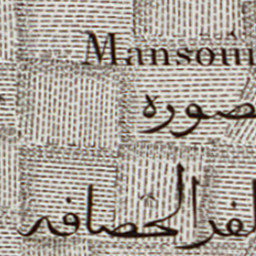 Mansou
صوره
كفر الحصافه